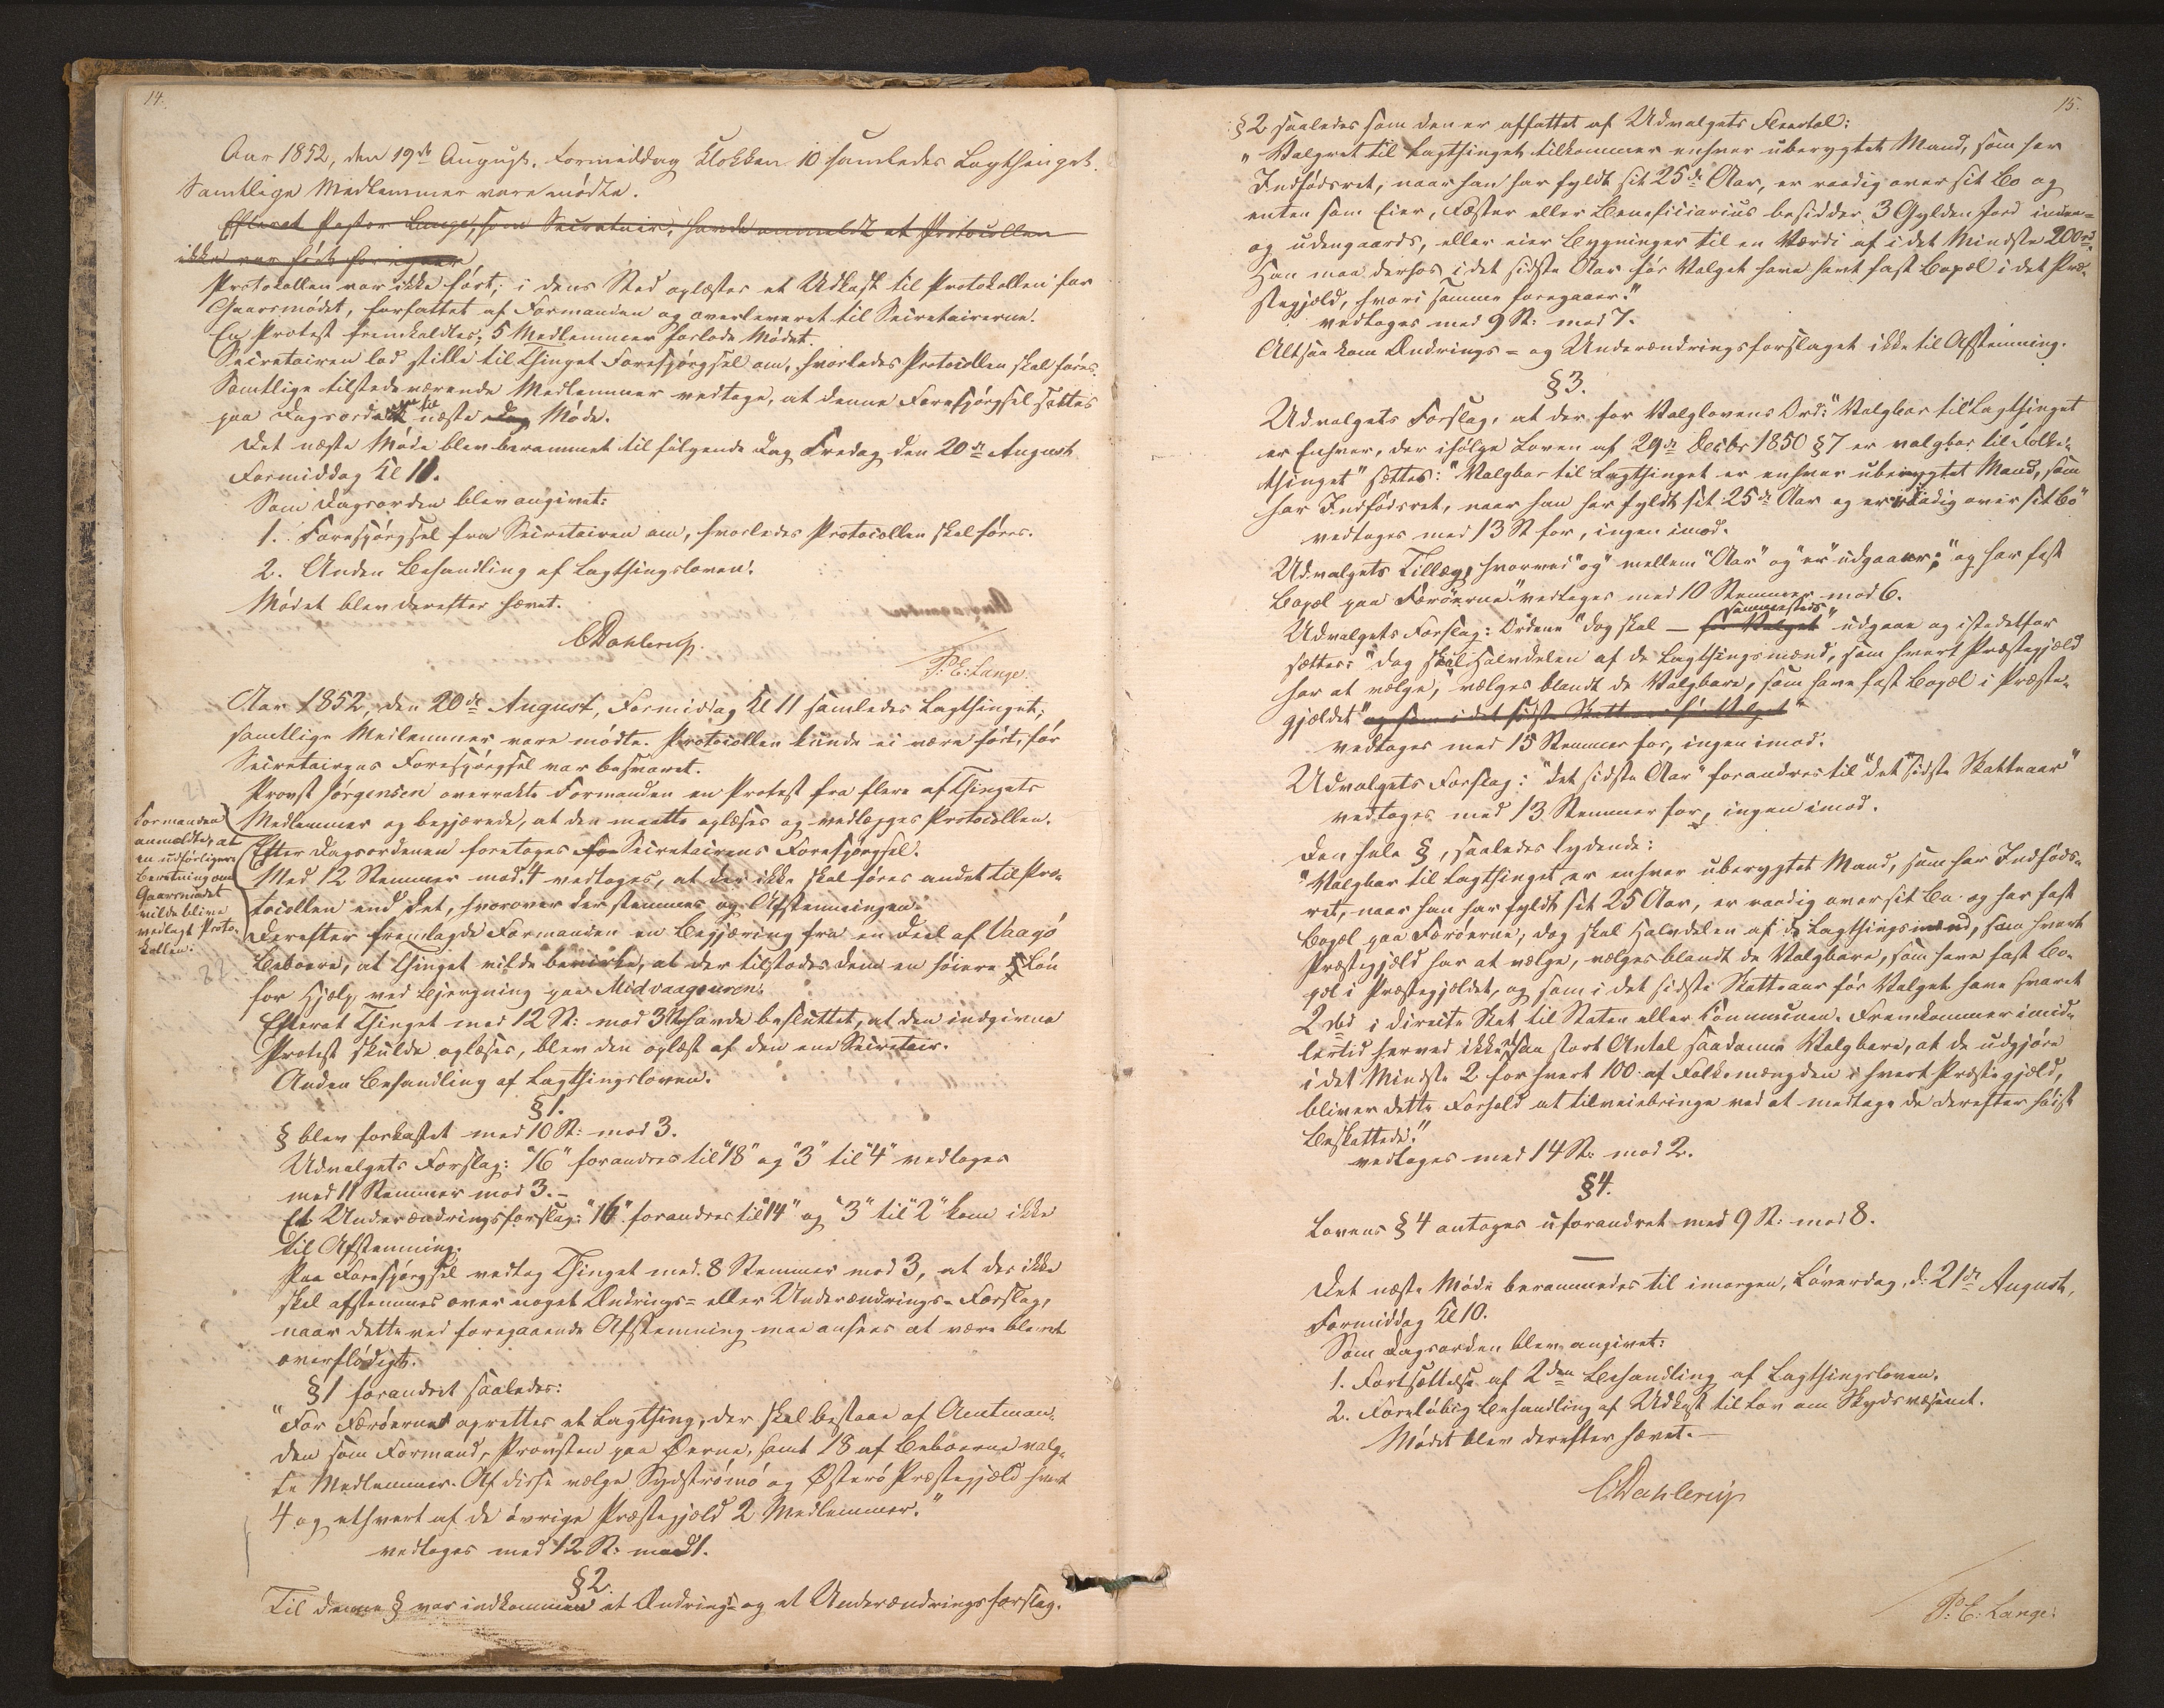 14.
Aar 1852, den 19de August, Formiddag Klokken 10 samledes Lagthinget.
Samtlige Medlemmer vare mødte.
Efterat Pastor Lange, som Secretair, havde anmeldt at Protocollen
ikke var ført for igaar
Protokollen var ikke ført; i dens Sted oplæstes et Udkast til Protokollen for
Gaarsmødet, forfattet af Formanden og overleveret til Secretairerne.
En Protest fremkaldtes; 5 Medlemmer forlode Mødet.
Secretairen lod stille til Thinget Forespørgsel om, hvorledes Protocollen skal føres.
Samtlige tilstedeværende Medlemmer vedtoge, at denne Forespørgsel sættes
paa Dagsordenen til næste Dag Møde.
Det næste Møde blev berammet til følgende Dag Fredag den 20de August
Formiddag Kl 11.
Som Dagsorden blev angivet:
1. Forespørgsel fra Secretairen om, hvorledes Protocollen skal føres.
2. Anden Behandling af Lagthingsloven.
Mødet blev derefter hævet.
CDahlerup.
P: E: Lange.
Aar 1852, den 20de August, Formiddag Kl 11 samledes Lagthinget;
samtlige Medlemmer vare mødte. Protocollen kunde ei være ført, før
Secretairens Forespørgsel var besvaret.
Provst Jørgensen overrakte Formanden en Protest fra flere af Thingets
Medlemmer og begjærede, at den maatte oplæses og vedlægges Protocollen.
Formanden
anmeldte, at
en udførligere
Beretning om
Gaarsmødet
vilde blive
vedlagt Proto-
kollen.
Efter Dagsordenen foretoges for Secretairens Forespørgsel.
Med 12 Stemmer mod 4 vedtoges, at der ikke skal føres andet til Pro-
tocollen end Det, hvorover der stemmes og Afstemningen.
Derefter fremlagde Formanden en Begjæring fra en Deel af Vaagø
Beboere, at Thinget vilde bevirke, at der tilstodes dem en høiere Løn
for Hjelp ved Bjergning paa Midvaagouren.
Efterat Thinget med 12 St: mod 3 St havde besluttet, at den indgivne
Protest skulde oplæses, blev den oplæst af den ene Secretair.
Anden Behandling af Lagthingsloven.
§1.
§ blev forkastet med 10 St: mod 3.
Udvalgets Forslag: "16" forandres til "18" og "3" til "4" vedtoges
med 11 Stemmer mod 3.-
Et Underændringsforslag: "16" forandres til "14" og "3" til "2" kom ikke
til Afstemning.
Paa Forespørgsel vedtog Thinget med 8 Stemmer mod 3, at der ikke
skal afstemmes over noget Ændrings= eller Underændrings-Forslag,
naar dette ved foregaaende Afstemning maa ansees at være blevet
overflødigt.
§1 forandret saaledes:
"For Færøerne oprettes et Lagthing, der skal bestaae af Amtman-
den som Formand, Provsten paa Øerne, samt 18 af Beboerne valg-
te Medlemmer. Af disse vælge Sydstrømø og Østerø Præstegjæld hvert
4 og ethvert af de øvrige Præstegjæld 2 Medlemmer."
vedtoges med 12 St: mod 1.
§2.
Til denne § var indkommen et Ændrings= og et Underændringsforslag.
15.
§2 saaledes som den er affattet af Udvalgets Fleertal:
"Valgret til Lagthinget tilkommer enhver uberygtet Mand, som har
Indfødsret, naar han har fyldt sit 25de Aar, er raadig over sit Bo og
enten som Eier, Fæster eller Beneficiarius besidder 3 Gylden Jord inden=
og udengaards, eller eier Bygninger til en Værdi af i det Mindste 200 rd.
Han maa derhos i det sidste Aar før Valget have havt fast Bopæl i det Præ-
stegjæld, hvori samme foregaaer."
vedtoges med 9 St: mod 7.
Altsaa kom Ændrings= og Underændringsforslaget ikke til Afstemning.
§3.
Udvalgets Forslag, at der for Valglovens Ord: "Valgbar til Lagthinget
er Enhver, der ifølge Loven af 29de Decbr 1850 §7 er valgbar til Folke-
thinget" sættes: "Valgbar til Lagthinget er enhver uberygtet Mand, som
har Indfødsret, naar han har fyldt sit 25de Aar og er raadig over sit Bo"
vedtoges med 13 St for, ingen imod.
Udvalgets Tillæg, hvorved "og" mellem "Aar" og "er" udgaaer; "og har fast
Bopæl paa Færøerne" vedtoges med 10 Stemmer mod 6.
Udvalgets Forslag: Ordene "dog skal — før Valget sammesteds" udgaae og istedetfor
sættes: "dog skal Halvdelen af de Lagthingsmænd, som hvert Præstegjæld
har at vælge, vælges blandt de Valgbare, som have fast Bopæl i Præste-
gjældet" og som i det sidste Skatteaar før Valget"
vedtoges med 15 Stemmer for, ingen imod.
Udvalgets Forslag: "det sidste Aar" forandres til "det sidste Skatteaar"
vedtoges med 13 Stemmer for, ingen imod.
Den hele §, saaledes lydende:
"Valgbar til Lagthinget er enhver uberygtet Mand, som har Indføds-
ret, naar han har fyldt sit 25 Aar, er raadig over sit Bo og har fast
Bopæl paa Færøerne, dog skal Halvdelen af de Lagthingsmænd, som hvert
Præstegjæld har at vælge, vælges blandt de Valgbare, som have fast Bo-
pæl i Præstegjældet, og som i det sidste Skatteaar før Valget have svaret
2 rbd i directe Skat til Staten eller Communen. Fremkommer imid-
lertid herved ikke et saa stort Antal saadanne Valgbare, at de udgjøre
i det Mindste 2 for hvert 100 af Folkemængden i hvert Præstegjæld,
bliver dette Forhold at tilveiebringe ved at medtage de derefter høist
Beskattede."
vedtoges med 14 St: mod 2.
§4.
Lovens §4 antoges uforandret med 9 St: mod 8.
Det næste Møde berammedes til imorgen, Løverdag, d: 21de August,
Formiddag Kl 10.
Som Dagsorden blev angivet:
1. Fortsættelse af 2den Behandling af Lagthingsloven.
2. Foreløbig Behandling af Udkast til Lov om Skydsvæsenet.
Mødet blev derefter hævet.—
CDahlerup
P: E: Lange.